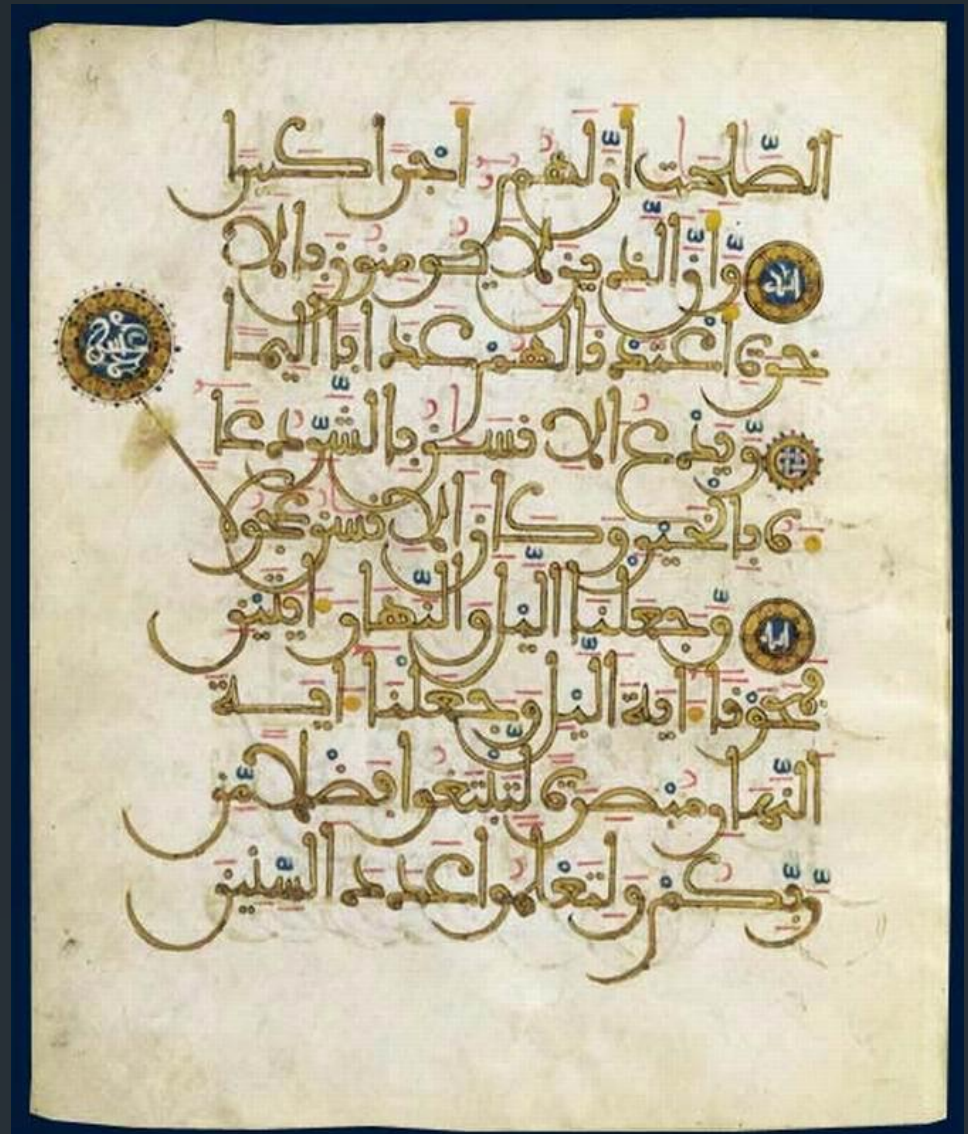 الصّلحت انّ لهم اجرا كبيرا
وّانّ الّذين لا يومنون بالا
خرة اعتدنا لهم عذابا اليما
ويدع الانسن بالشّرّ دعا
ه بالخير وكان الانسن عجولا
وجعلنا اليل والنّهار ايتين
فمحونا اية الّيل وجعلنا اية
النّهار مبصرة لّتبتغوا فضلا مّن
رّبّكم ولتعلموا عدد السّنين